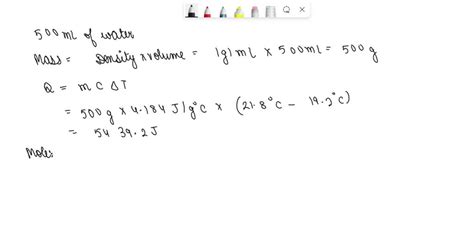 500 mL of water
Mass = Density x volume = 1g/mL x 500mL = 500 g
Q = m C ΔT
= 500g x 4.184 J/g°C x (21.8°C - 19.2°C)
= 5439.2 J
Moles